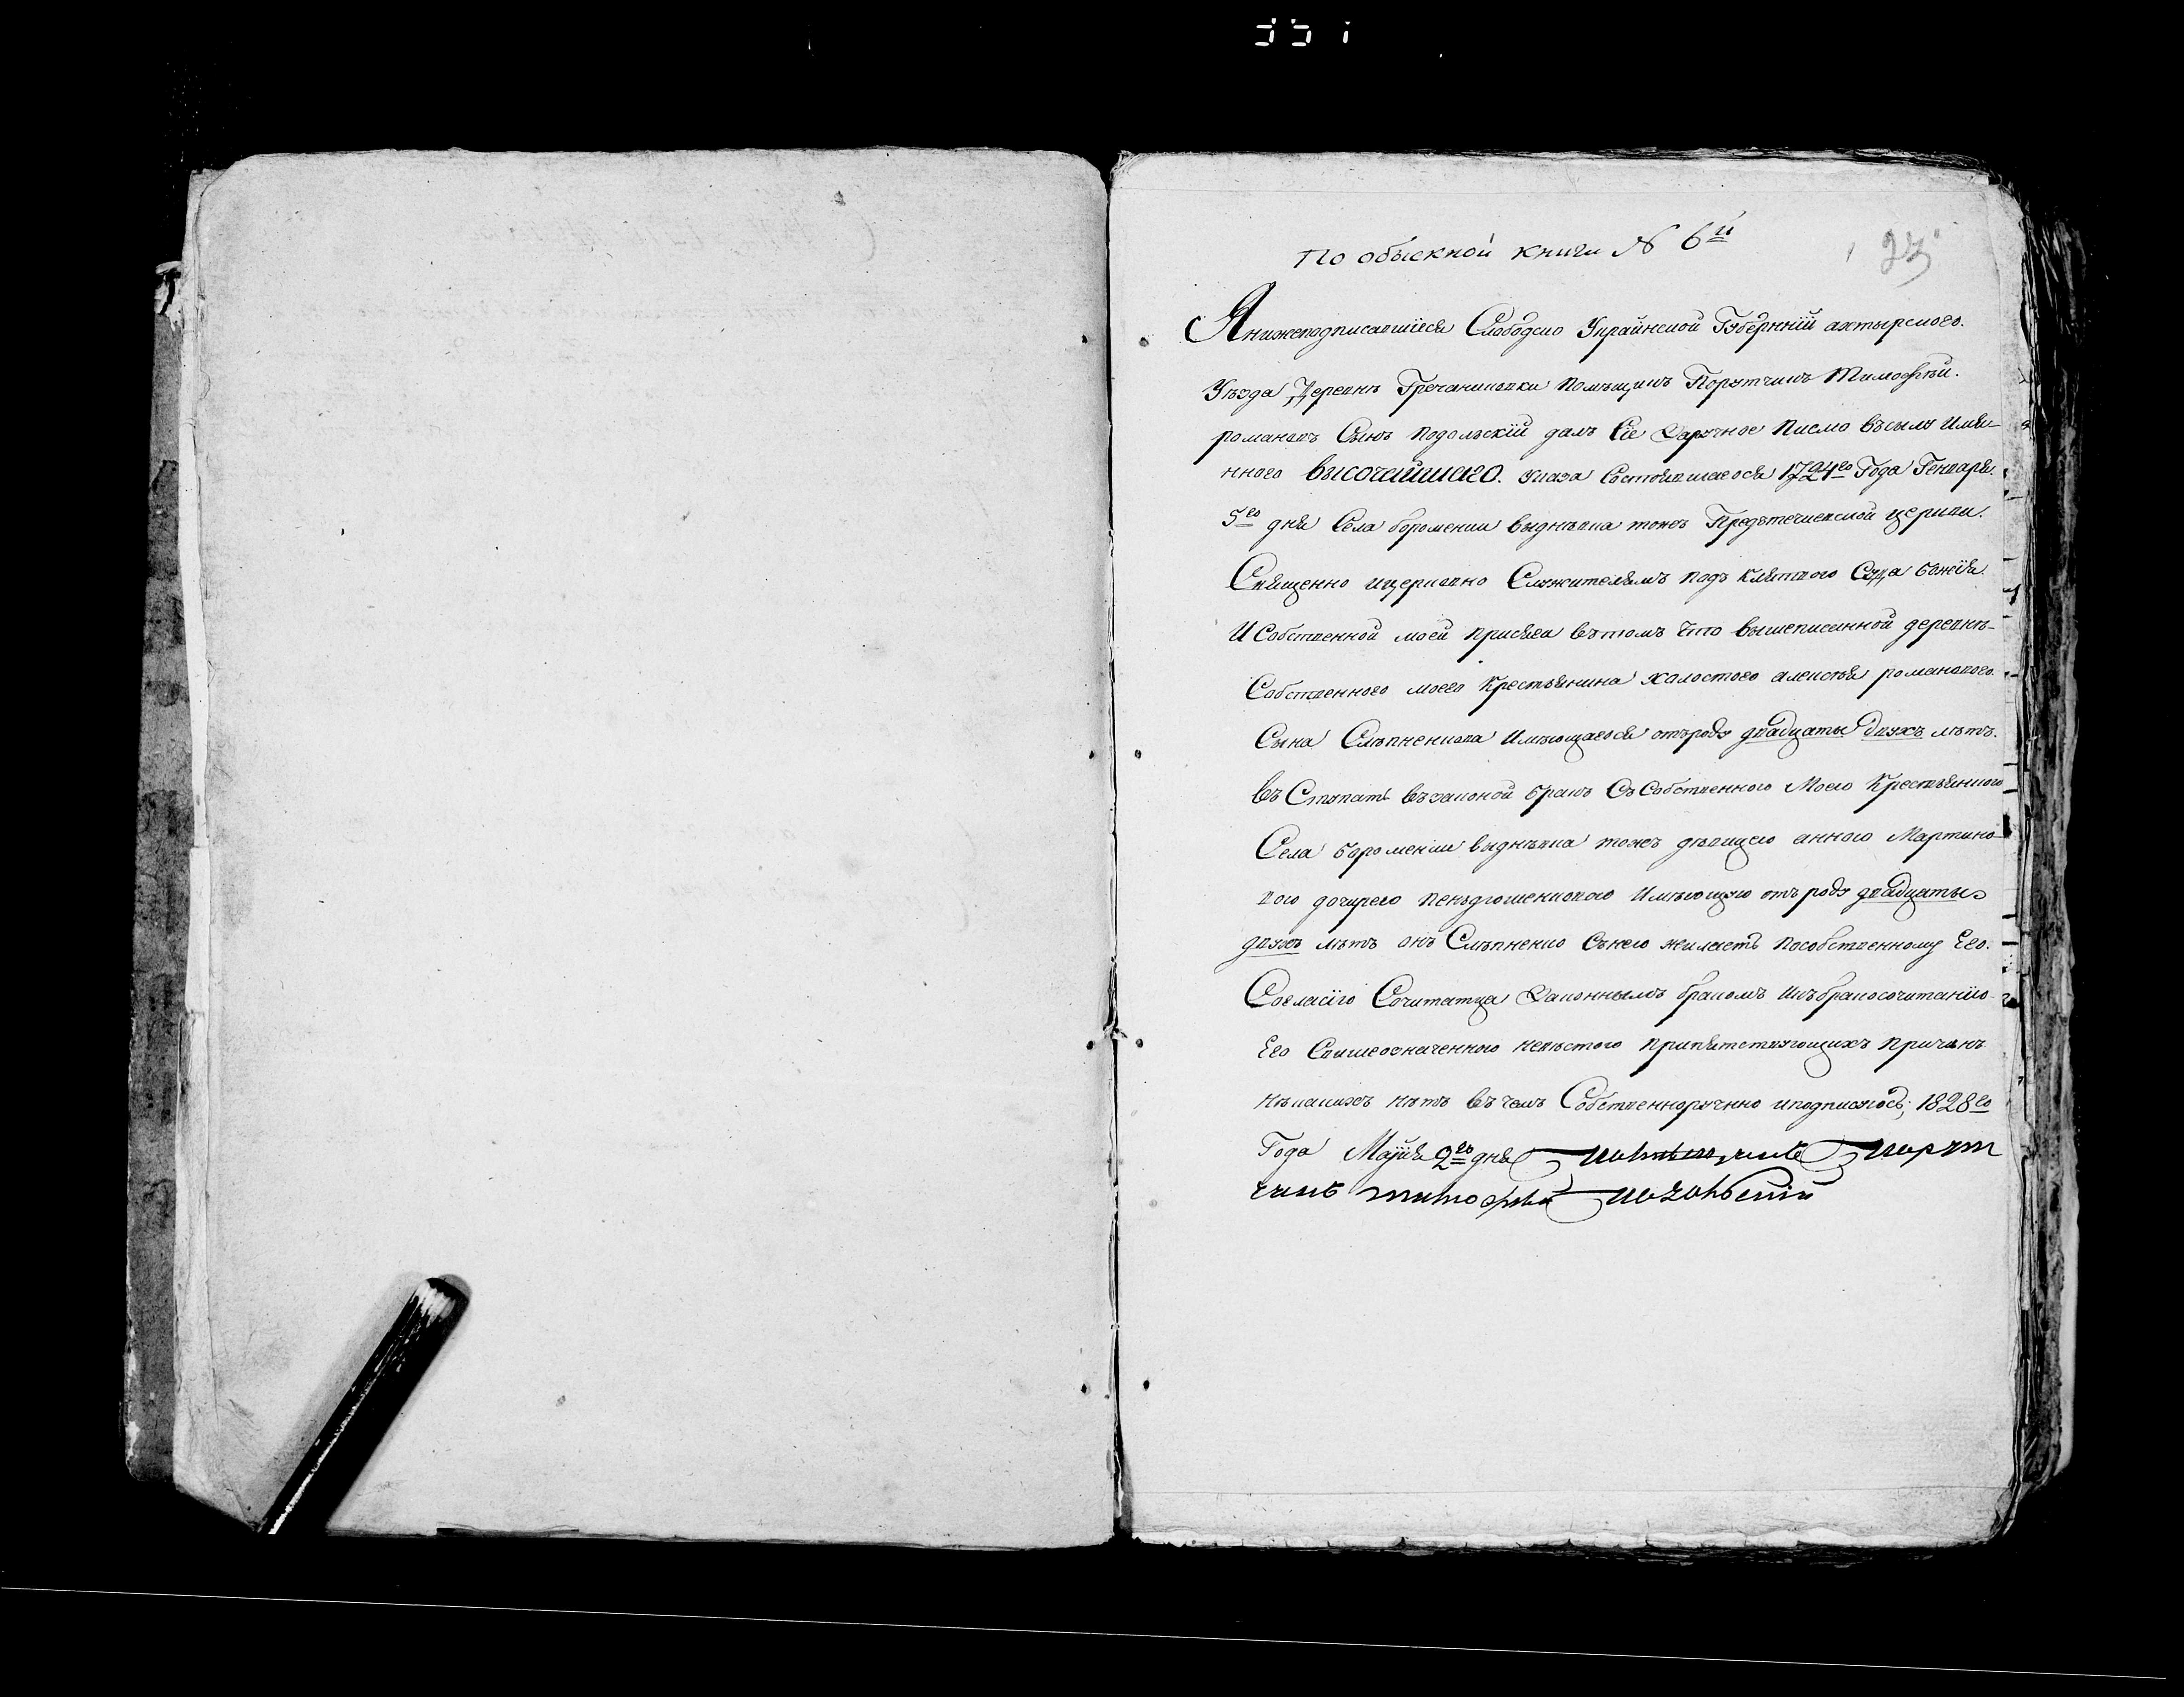 По обыскной книги № 6й
23
Я нижеподписавшійся Слободско Украинской Губерніи ахтырского.
Уѣзда Деревнѣ Гречаниновки помѣщикъ Порутчикъ Тимофѣй.
романовъ Сынъ подольскій далъ Сіе Заручное писмо въсилу Имян-
ного высочайшаго. указа Состоявшагося 1724го Года Генваря.
5го дня Села боромени выднѣвка тожъ Предътечиевской церкви.
Священно ицерковно Служителямъ подъ клятвою Суда божія
И Собственной моей присяги вътомъ что вышеписанной деревнѣ-
Собственного моего крестьянина холостого алексѣя романового
Сына Слѣпненкова Имѣющагося отъроду двадцаты двухъ лѣтъ.
въ Ступать въ законой бракъ Съ Собственною Моею крестьянкою
Села боромени выднѣвка тожъ дѣвицею анною Мартино
вою дочирею Имѣющую отъ роду двадцаты
двухъ лѣтъ онъ Слѣпненко Сънею жилаетъ пособственному Его.
Согласію Сочитатца Законнымъ бракомъ икъбракосочитанію
Его Свишеозначенною невѣстою припятствующихъ причинъ
нѣкакихъ нѣтъ въ чемъ Собственноручно иподписуюсь; 1828го
Года Маіия 2го дня помѣщикъ порут
чикъ тимофѣй подольский